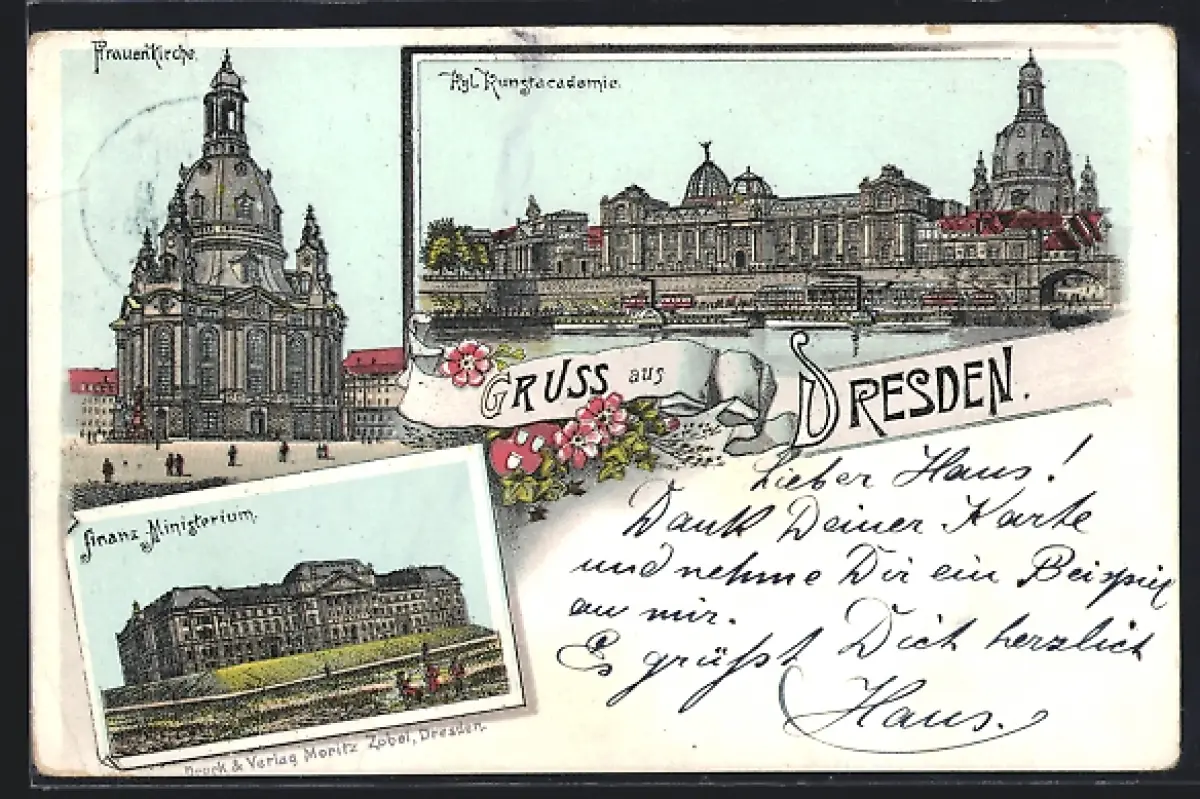 Frauenkirche.
Kgl. Kunstacademie.
GRUSS aus DRESDEN.
Finanz Ministerium.
Lieber Hans!
Dank Deiner Karte
und nehme Dir ein Beispiel
an mir.
Es grüßt Dich herzlich
Hans.
Druck & Verlag Moritz Zobel, Dresden.